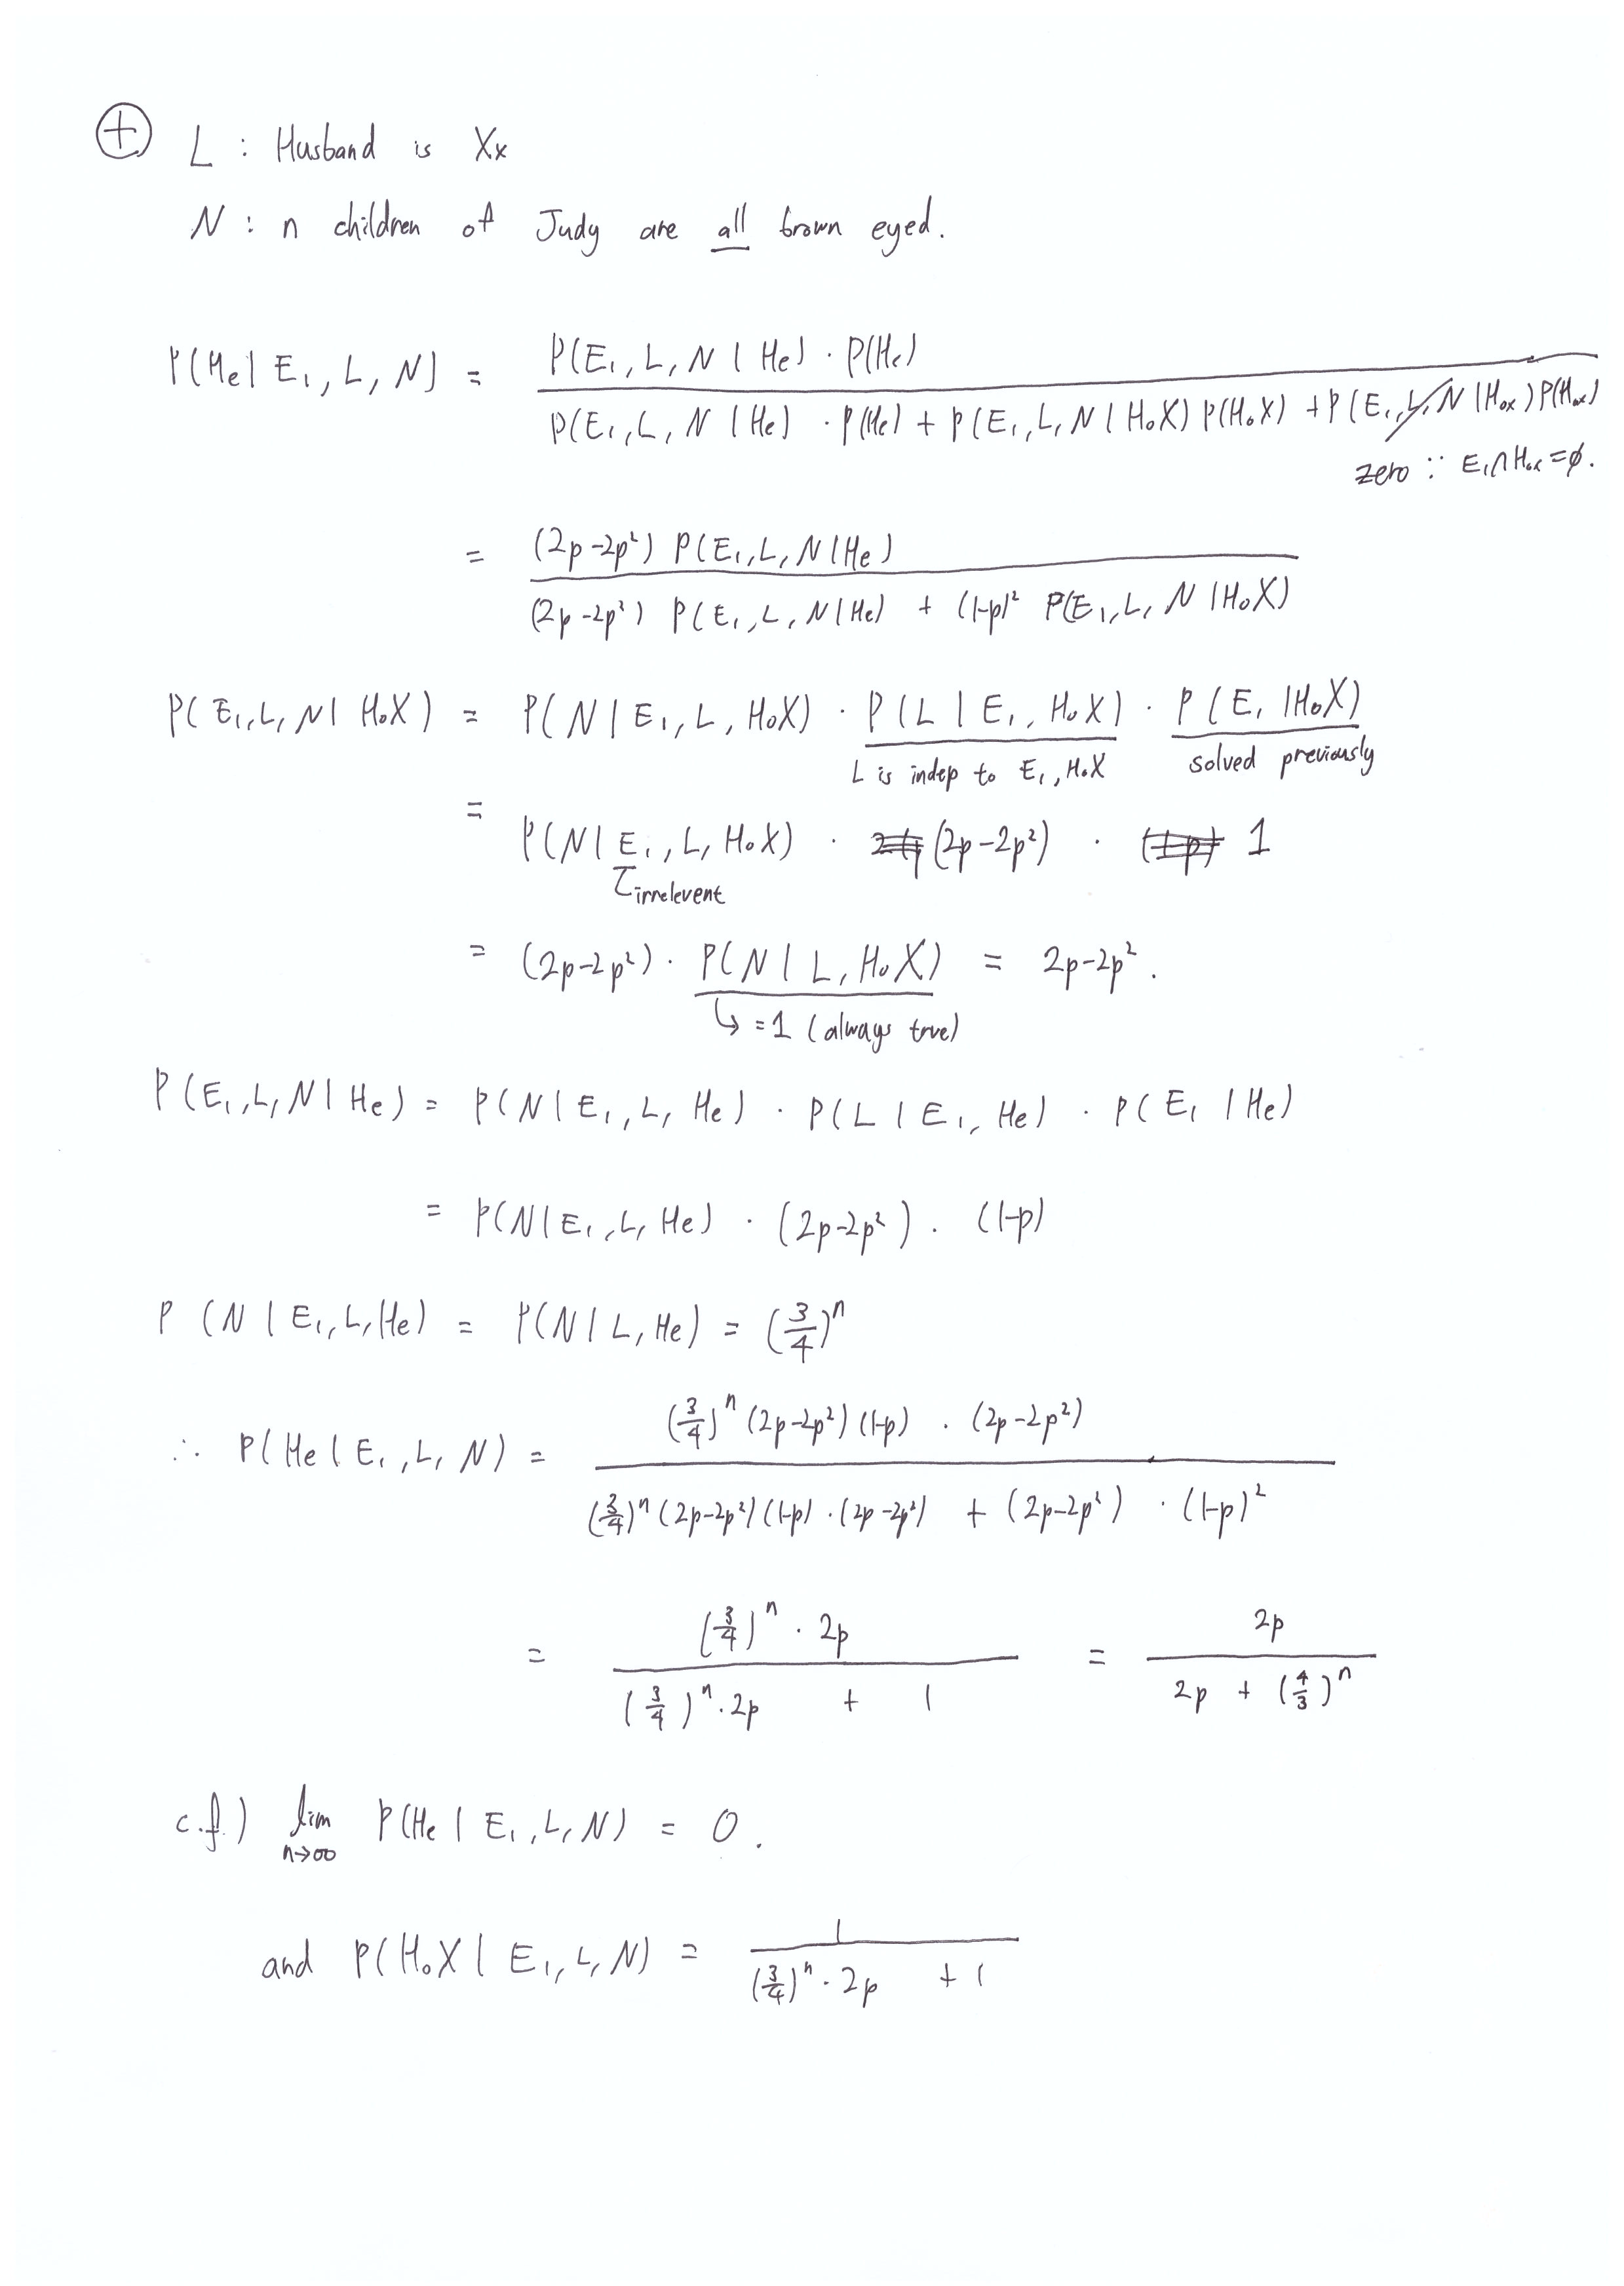 ⊕ L : Husband is Xx
N : n children of Judy are all brown eyed.
P(He | E₁, L, N) = P(E₁, L, N | He) · P(He) / P(E₁, L, N | He) · P(He) + P(E₁, L, N | HoX) P(HoX) + P(E₁, L, N | Hox) P(Hox)
zero ∵ E₁∩Hox = ∅.
= (2p-2p²) P(E₁, L, N | He) / (2p-2p²) P(E₁, L, N | He) + (1-p)² P(E₁, L, N | HoX)
P(E₁, L, N | HoX) = P(N | E₁, L, HoX) · P(L | E₁, HoX) · P(E₁ | HoX)
L is indep to E₁, HoX solved previously
= P(N | E₁, L, HoX) · (2p-2p²) · 1
irrelevent
= (2p-2p²) · P(N | L, HoX) = 2p-2p².
↳ = 1 (always true)
P(E₁, L, N | He) = P(N | E₁, L, He) · P(L | E₁, He) · P(E₁ | He)
= P(N | E₁, L, He) · (2p-2p²) · (1-p)
P(N | E₁, L, He) = P(N | L, He) = (3/4)ⁿ
∴ P(He | E₁, L, N) = (3/4)ⁿ (2p-2p²)(1-p) · (2p-2p²) / (3/4)ⁿ (2p-2p²)(1-p) · (2p-2p²) + (2p-2p²) · (1-p)²
= (3/4)ⁿ · 2p / (3/4)ⁿ · 2p + 1 = 2p / 2p + (4/3)ⁿ
c.f.) lim n→∞ P(He | E₁, L, N) = 0.
and P(HoX | E₁, L, N) = 1 / (3/4)ⁿ · 2p + 1